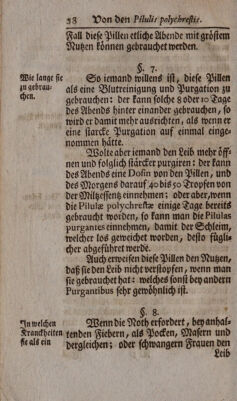 28 Von den Pilulis polychrestis.
Fall diese Pillen etliche Abende mit gröstem
Nutzen können gebrauchet werden.
§. 7.
Wie lange sie
zu gebrau-
chen.
So jemand willens ist, diese Pillen
als eine Blutreinigung und Purgation zu
gebrauchen: der kann solche 8 oder 10 Tage
des Abends hinter einander gebrauchen, so
wird er damit mehr ausrichten, als wenn er
eine starcke Purgation auf einmal einge-
nommen hätte.
Wolte aber iemand den Leib mehr öff-
nen und folglich stärcker purgiren: der kann
des Abends eine Dosin von den Pillen, und
des Morgens darauf 40 bis 50 Tropfen von
der Miltzessentz einnehmen: oder aber, wenn
die Pilulæ polychrestæ einige Tage bereits
gebraucht worden, so kann man die Pilulas
purgantes einnehmen, damit der Schleim,
welcher los geweichet worden, desto füglí-
cher abgeführet werde.
Auch erweisen diese Pillen den Nutzen,
daß sie den Leib nicht verstopfen, wenn man
sie gebrauchet hat: welches sonst bey andern
Purgantibus sehr gewöhnlich ist.
§. 8.
In welchen
Kranckheiten
sie als ein
Wenn die Noth erfordert, bey anhal-
tenden Fiebern, als Pocken, Masern und
dergleichen; oder schwangern Frauen den
Leib